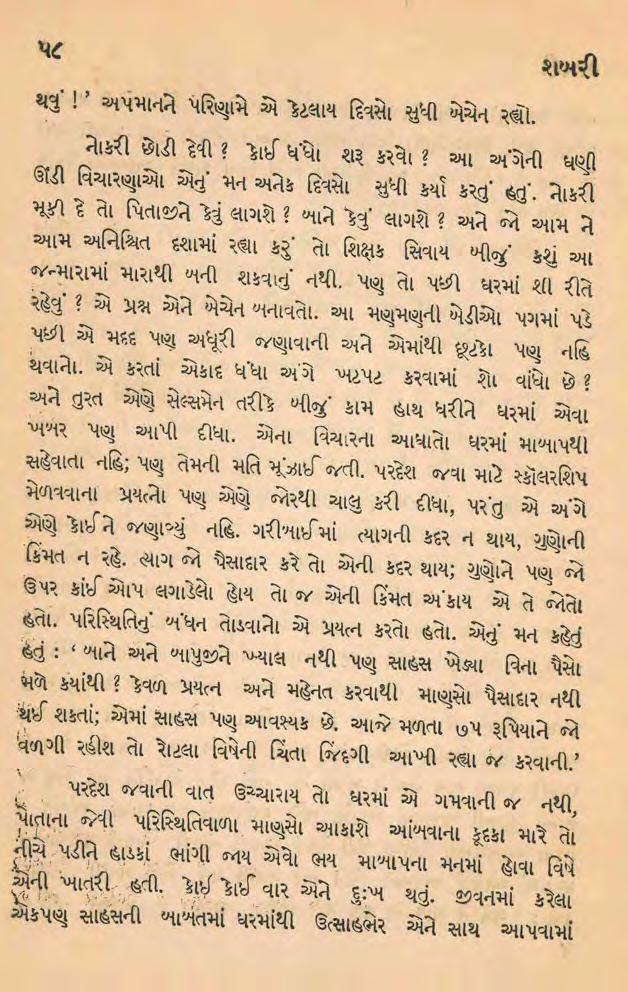 ૫૮
શબરી
થવું !’ અપમાનને પરિણામે એ કેટલાય દિવસો સુધી બેચેન રહ્યો.
નોકરી છોડી દેવી ? કોઈ ધંધો શરૂ કરવો ? આ અંગેની ઘણી
ઊંડી વિચારણાઓ એનું મન અનેક દિવસો સુધી કર્યા કરતું હતું. નોકરી
મૂકી દે તો પિતાજીને કેવું લાગશે ? બાને કેવું લાગશે ? અને જો આમ ને
આમ અનિશ્ચિત દશામાં રહ્યા કરું તો શિક્ષક સિવાય બીજું કશું આ
જન્મારામાં મારાથી બની શકવાનું નથી. પણ તો પછી ઘરમાં શી રીતે
રહેવું ? એ પ્રશ્ન એને બેચેન બનાવતો. આ મણમણની બેડીઓ પગમાં પડે
પછી એ મદદ પણ અધૂરી જણાવાની અને એમાંથી છૂટકો પણ નહિ
થવાનો. એ કરતાં એકાદ ધંધા અંગે ખટપટ કરવામાં શો વાંધો છે ?
અને તુરત એણે સેલ્સમેન તરીકે બીજું કામ હાથ ધરીને ઘરમાં એવા
ખબર પણ આપી દીધા. એના વિચારના આઘાતો ઘરમાં માબાપથી
સહેવાતા નહિ; પણ તેમની મતિ મૂંઝાઈ જતી. પરદેશ જવા માટે સ્કૉલરશિપ
મેળવવાના પ્રયત્નો પણ એણે જોરથી ચાલુ કરી દીધા, પરંતુ એ અંગે
એણે કોઈને જણાવ્યું નહિ. ગરીબાઈમાં ત્યાગની કદર ન થાય, ગુણોની
કિંમત ન રહે. ત્યાગ જો પૈસાદાર કરે તો એની કદર થાય; ગુણોને પણ જો
ઉપર કાંઈ ઓપ લગાડેલો હોય તો જ એની કિંમત અંકાય એ તે જોતો
હતો. પરિસ્થિતિનું બંધન તોડવાનો એ પ્રયત્ન કરતો હતો. એનું મન કહેતું
હતું : ‘ બાને અને બાપુજીને ખ્યાલ નથી પણ સાહસ ખેડ્યા વિના પૈસો
મળે કયાંથી ? કેવળ પ્રયત્ન અને મહેનત કરવાથી માણસો પૈસાદાર નથી
થઈ શકતાં; એમાં સાહસ પણ આવશ્યક છે. આજે મળતા ૭૫ રૂપિયાને જો
વળગી રહીશ તો રોટલા વિષેની ચિંતા જિંદગી આખી રહ્યા જ કરવાની.’
પરદેશ જવાની વાત ઉચ્ચારાય તો ઘરમાં એ ગમવાની જ નથી,
પોતાના જેવી પરિસ્થિતિવાળા માણસો આકાશે આંબવાના કૂદકા મારે તો
નીચે પડીને હાડકાં ભાંગી જાય એવો ભય માબાપના મનમાં હોવા વિષે
એની ખાતરી હતી. કોઈ કોઈ વાર એને દુઃખ થતું. જીવનમાં કરેલા
એકપણ સાહસની બાબતમાં ઘરમાંથી ઉત્સાહભેર એને સાથ આપવામાં